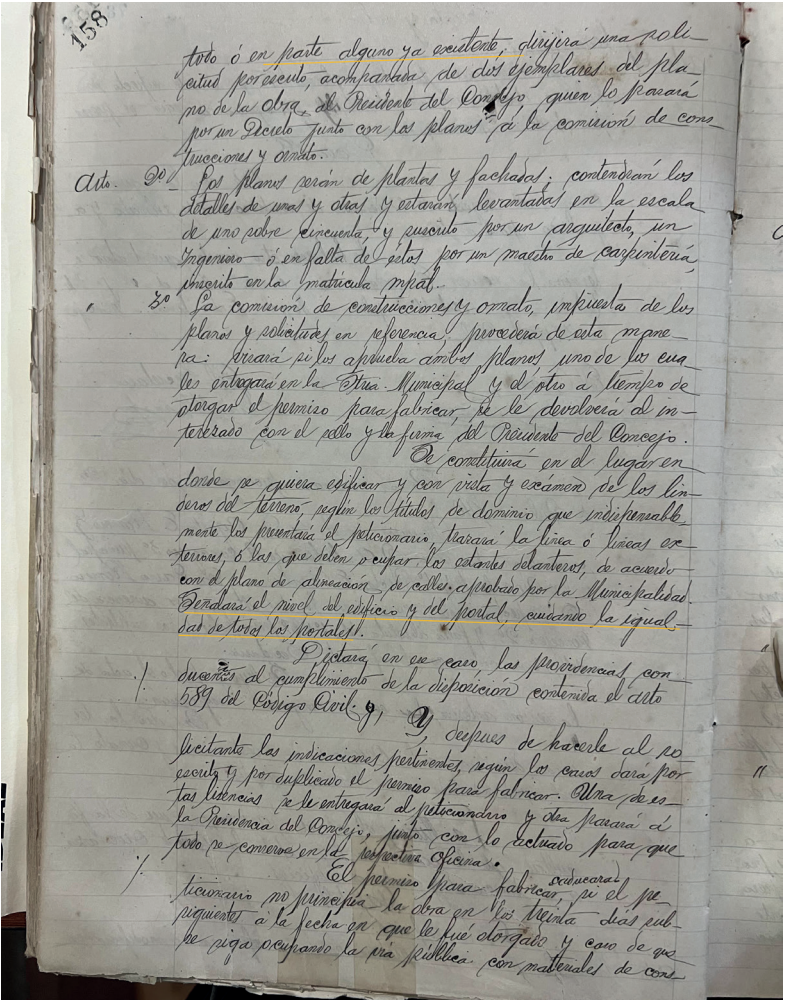 158
todo ó en parte alguno ya existente, dirijirá una soli-
citud por escrito, acompañada de dos ejemplares del pla-
no de la obra, al Presidente del Concejo, quien lo pasará
por un Decreto junto con los planos á la comisión de cons-
trucciones y ornato.
Arto. 2o- Los planos serán de plantas y fachadas; contendrán los
detalles de unas y otras y estarán levantadas en la escala
de uno sobre cincuenta y suscrito por un arquitecto, un
Ingeniero - ó en falta de éstos, por un maestro de carpintería,
inscrito en la matrícula mpal.
" 3o La comisión de construcciones y ornato, impuesta de los
planos y solicitudes en referencia, procederá de esta mane-
ra: visará si los aprueba ambos planos, uno de los cua-
les entregará en la Stria. Municipal y el otro á tiempo de
otorgar el permiso para fabricar, se le devolverá al in-
terezado con el sello y la firma, del Presidente del Concejo.
Se constituirá en el lugar en
donde se quiera edificar y con vista y exámen de los lin-
deros del terreno, según los títulos de dominio que indispensable-
mente los presentará el peticionario, trazará la línea ó líneas ex-
teriores, ó las que deben ocupar los estantes delanteros, de acuerdo
con el plano de alineación de calles aprobado por la Municipalidad.
Señalará el nivel del edificio y del portal, cuidando la igual-
dad de todos los portales.
Dictará, en ese caso, las providencias, con-
ducentes al cumplimiento de la disposición contenida el arto
589 del Código Civil. y, Y, despues de hacerle al so
licitante las indicaciones pertinentes, según los casos dará por
escrito y por duplicado el permiso para fabricar. Una de es-
tas licencias se le entregará al peticionario y otra pasará á
la Presidencia del Concejo, junto con lo actuado para que
todo se conserve en la respectiva oficina.
El permiso para fabricar, caducará si el pe-
ticionario no principia la obra en los treinta días sub-
siguientes á la fecha en que le fué otorgado y caso de que
se siga ocupando la vía pública con materiales de cons-